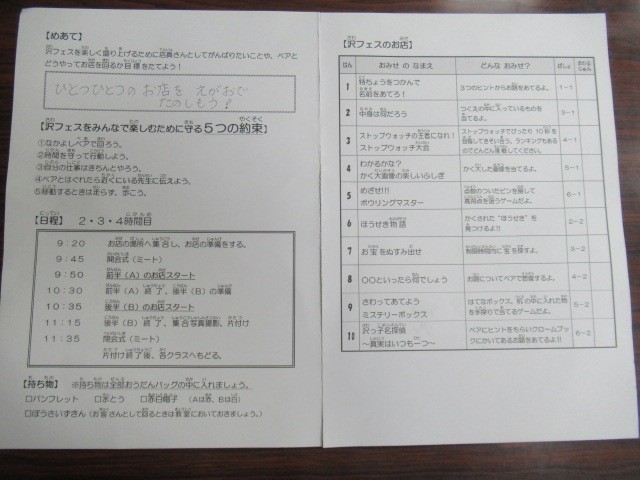 【めあて】
沢フェスを楽しく盛り上げるために店員さんとしてがんばりたいことや、ペアと
どうやってお店を回るか目標をたてよう！
ひとつひとつの お店を えがおで
たのしもう！
【沢フェスをみんなで楽しむために守る５つの約束】
①なかよしペアで回ろう。
②時間を守って行動しよう。
③自分の仕事はきちんとやろう。
④ペアとはぐれたら近くにいる先生に伝えよう。
⑤移動するときは走らず、歩こう。
【日程】 ２・３・４時間目
９：２０ お店の場所へ集合し、お店の準備をする。
９：４５ 開会式（ミート）
９：５０ 前半（A）のお店スタート
１０：３０ 前半（A）終了、後半（B）の準備
１０：３５ 後半（B）のお店スタート
１１：１５ 後半（B）終了、集合写真撮影、片付け
１１：３５ 閉会式（ミート）
片付け終了後、各クラスへもどる。
【持ち物】 ※持ち物は全部おうだんバッグの中に入れましょう。
□パンフレット □水とう □赤白帽子 （Aは赤、Bは白）
□ぼうさいずきん（お客さんとして回るときは教室においておきましょう。）
【沢フェスのお店】
おみせ の なまえ どんな おみせ？ ばしょ
1 特ちょうをつかんで 名前をあてろ！ ３つのヒントからお題をあてるよ。 １－１
2 中身は何だろう つくえの中に入っているものを 当てるよ。 ３－１
3 ストップウォッチの王者になれ！ ストップウォッチ大会 ストップウォッチでぴったり１０秒を 目指してきそい合う。ランキングもある のでどんどん挑戦してきてね。 ４－１
4 わかるかな？ かく大画像の楽しいふしぎ かく大した画像を当てるよ。 ５－１
5 めざせ!!! ボウリングマスター 点数のついたピンを倒して 高得点を狙うゲームだよ。 ６－１
6 ほうせき物語 かくされた"ほうせき"を 見つけるよ!! ２－２
7 お宝をぬすみ出せ 制限時間内に宝を探すよ。 ３－２
8 〇〇といったら何でしょう お題についてペアで想像するよ。 ４－２
9 さわってあてよう ミステリーボックス はてなボックス。箱の中に入れた物 を手探りで当てるゲームだよ。 ５－２
10 沢っ子名探偵 ～真実はいつも一つ～ ペアにヒントをもらいクロームブッ クにかいてあるお題をあてるよ!! ６－２